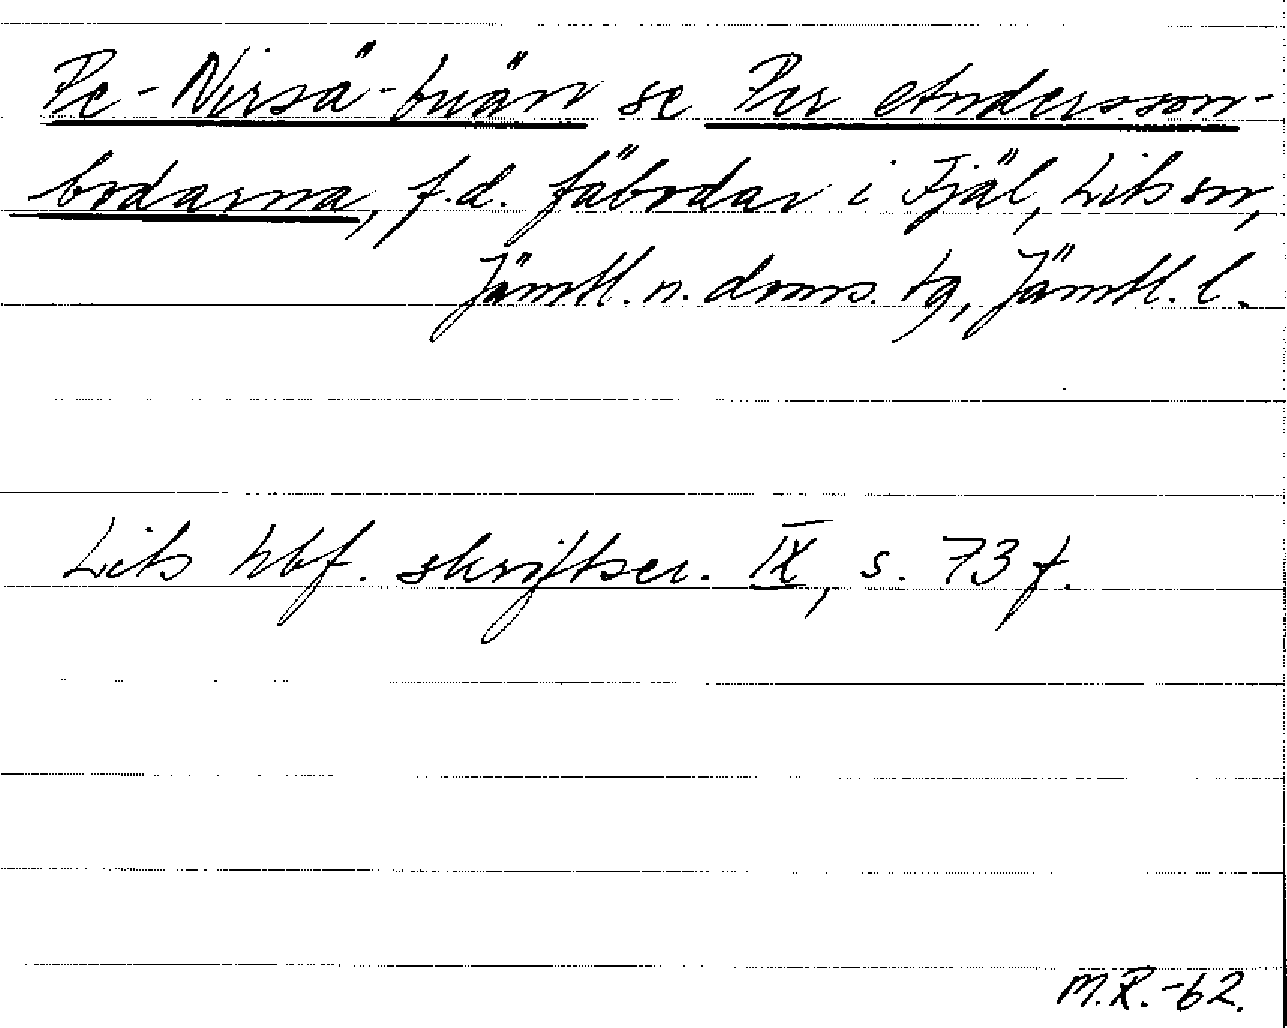 Pe-Nirsä-buän se Per Andersson-
bodarna, f.d. fäbodar i Fjäl, Lits sn,
Jämtl. n. doms. tg, Jämtl. l.
Lits hbf. skriftser. IX, s. 73 f.
M.R.-62.